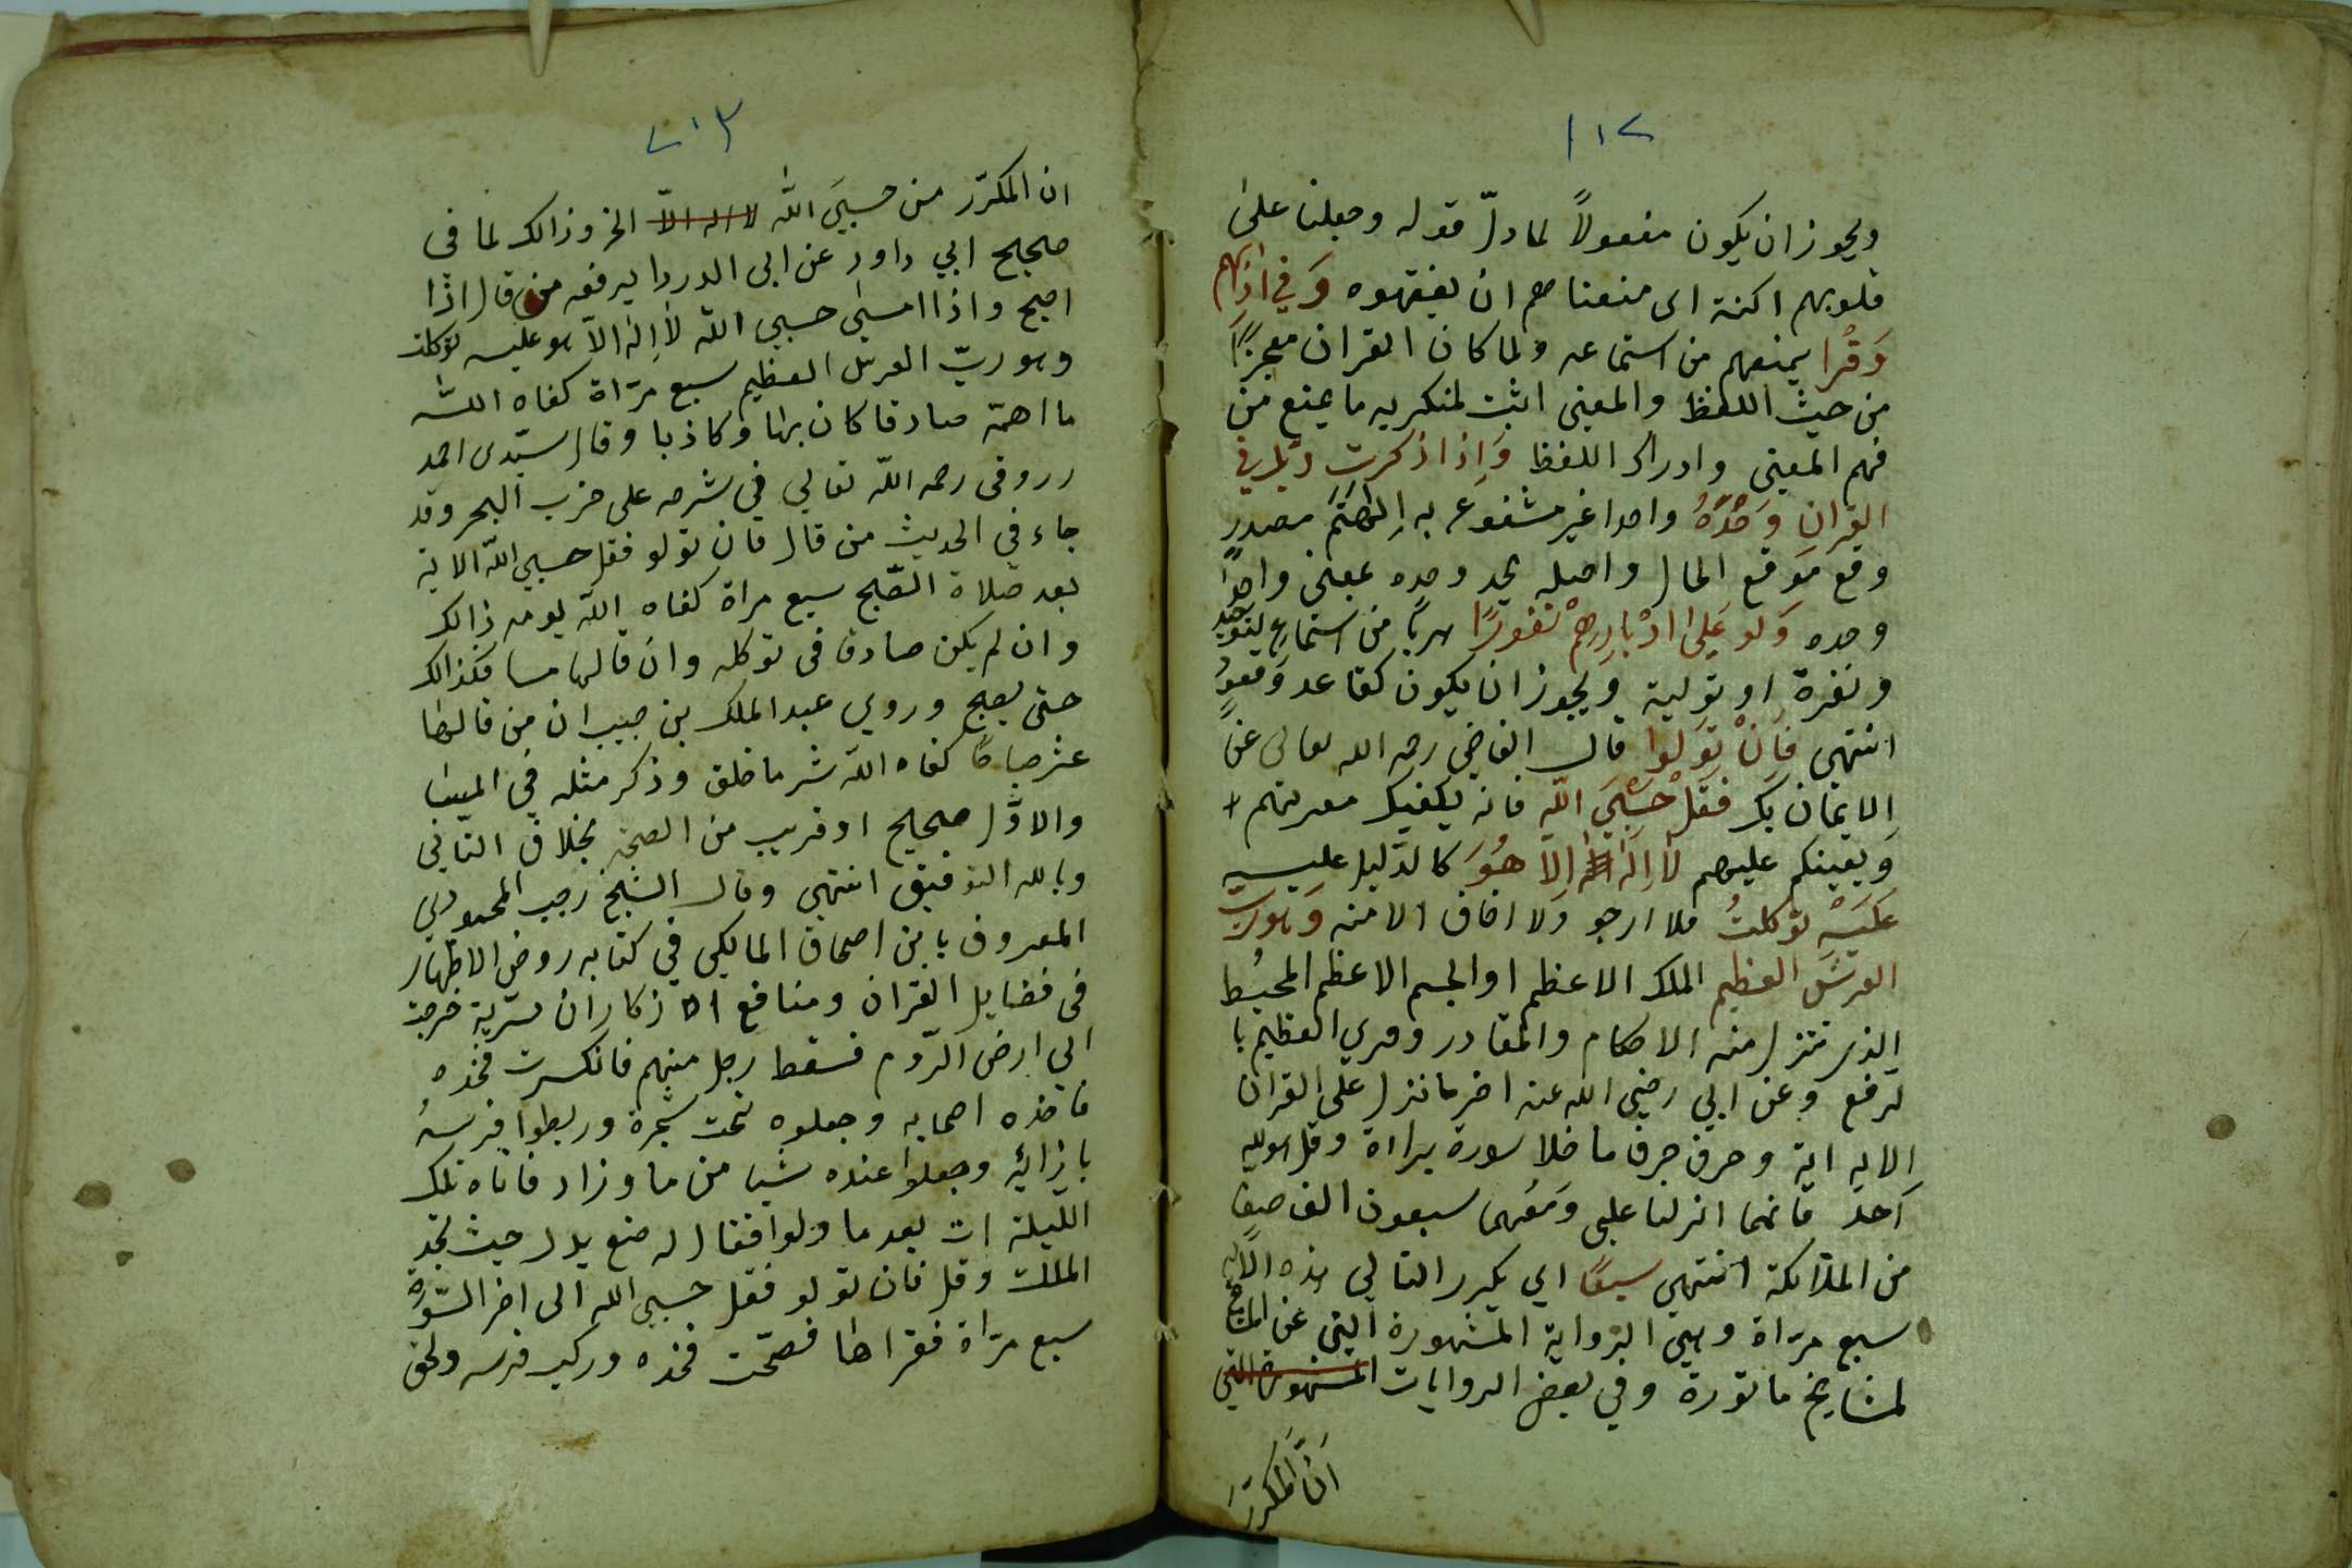 ١١٢
ويجوز ان يكون مفعولاً لما دلّ قوله وجعلنا على
قلوبهم اكنة اى منعناهم ان يفقهوه وَفي اذانهم
وَقْرا يمنعهم من استماعه ولما كان القران معجزًا
من حيث اللفظ والمعنى اثبت لمنكريه ما يمنع من
فهم المعنى وادراك اللفظ وَاِذا ذكرت ربّك في
القران وَحْدَهُ واحدا غير مشفوع به الهتهم مصدر
وقع موقع الحال واصله يحد وحده بمعنى واحدًا
وحده وَلو عَلىٰ ادْبارِهمْ نفورًا هربًا من استماع التوحيد
ونفرة او تولية ويجوز ان يكون كقاعد وقعود
انتهى فَاِنْ تَوَلوا قال القاضي رحمه الله تعالى عن
الايمان بك فقلْ حَسْبِيَ الله فانه يكفيك معرتهم
وَيعينكم عليهم لَا اِلٰهَ اِلا هُوَ كالدّليل عليه
عَليَهِ توكلتُ فلا ارجو ولا اخاف الا منه وَهو ربّ
العرشَ العظيم الملك الاعظم او الجسم الاعظم المحيط
الذى تنزل منه الاحكام والمقادر وقري العظيم با
لرفع وعن ابي رضي الله عنه اخر ما نزل على القران
الايه اية وحرف حرف ما خلا سورة براءة وقل هو الله
اَحدٌ فانهما انزلتا علي وَمعهما سبعون الف صف
من الملائكة انتهى سبعًا اي يكرر التالي هذه الاية
سبع مرّاة وهي الرّواية المشهورة التي عن
لمشايخ ماثورة وفي بعض الروايات المشهورة التي
انّ المكرّر
٢١٣
ان المكرّر من حسبيَ الله لا اله الاّ الخ وذالك لما فى
صحيح ابي داود عن ابى الدردا يرفعه من قال اذا
اصبح واذا امسى حسبي الله لا اِلٰه الا هو عليه توكلت
وهو ربّ العرش العظيم سبع مرّاة كفاه الله
ما اهمّه صادقا كان بها او كاذبا وقال سيّدى احمد
رروقى رحمه الله تعالى في شرحه على حزب البحر وقد
جاء في الحديث من قال فان تولو فقل حسبي الله الاية
بعد صلاة الصّبح سبع مراة كفاه الله يومه ذالك
وان لم يكن صادق فى توكله وان قالها مسا فكذالك
حتى يصبح وروي عبد الملك بن حبيب ان من قالها
عشر صباحًا كفاه الله شر ما خلق وذكر مثله في المبيت
والاوّل صحيح او قريب من الصحة بخلاف الثاني
وبالله التوفيق انتهى وقال الشيخ رجب المحمودي
المعروف بابن اصحاق المالكي في كتابه روض الاظهار
فى فضايل القران ومنافع الاذكار ان سرية خرجت
الي ارض الرّوم فسقط رجل منهم فانكسرت فخذه
فاخذه اصحابه وجعلوه تحت شجرة وربطوا فرسهُ
بازائه وجعلوا عنده شيا من ما وزاد فاتاه تلك
الليلة ات بعد ما ولوا فقال له ضع يدك حيث تجد
الملك وقل فان تولو فقل حسبي الله الى اخر السّورة
سبع مرّاة فقراها فصحّت فخذه وركب فرسه ولحق